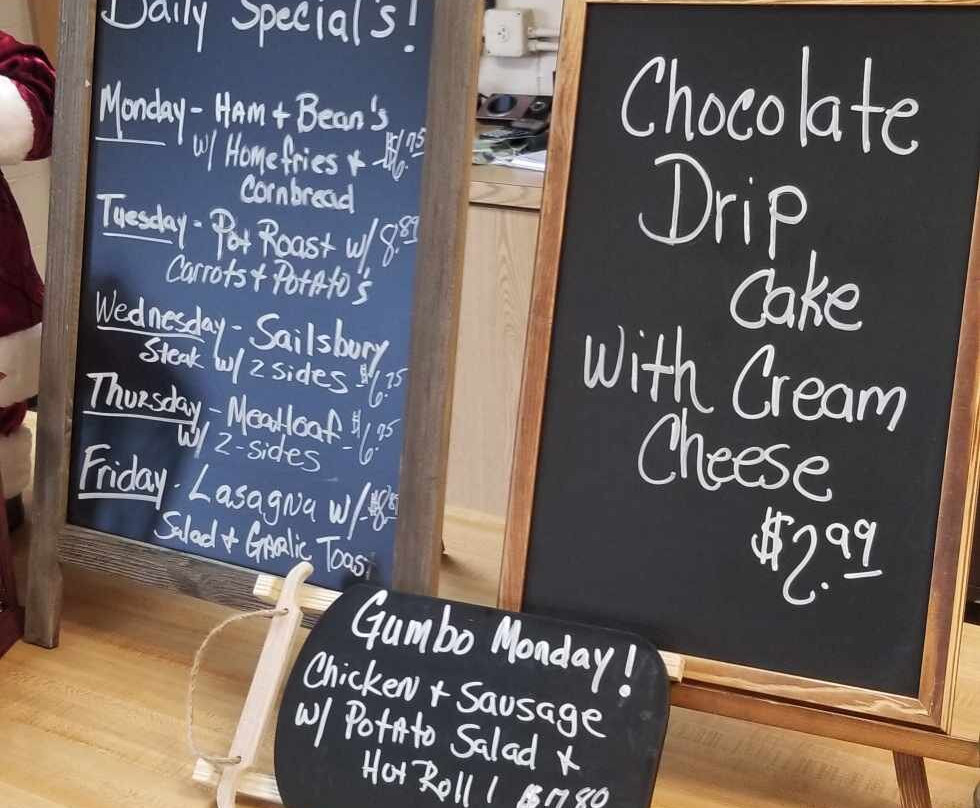 Daily Special's!
Monday - HAM + Bean's
w/ Homefries + $6.75
Cornbread
Tuesday - Pot Roast w/ 8.89
Carrots + Potato's
Wednesday - Sailsbury
Steak w/ 2 sides - $6.75
Thursday - Meatloaf $6.75
w/ 2-sides
Friday - Lasagna w/ - $8.89
Salad + Garlic Toast
Chocolate
Drip
Cake
With Cream
Cheese
$2.99
Gumbo Monday!
Chicken + Sausage
w/ Potato Salad +
Hot Roll! $7.80